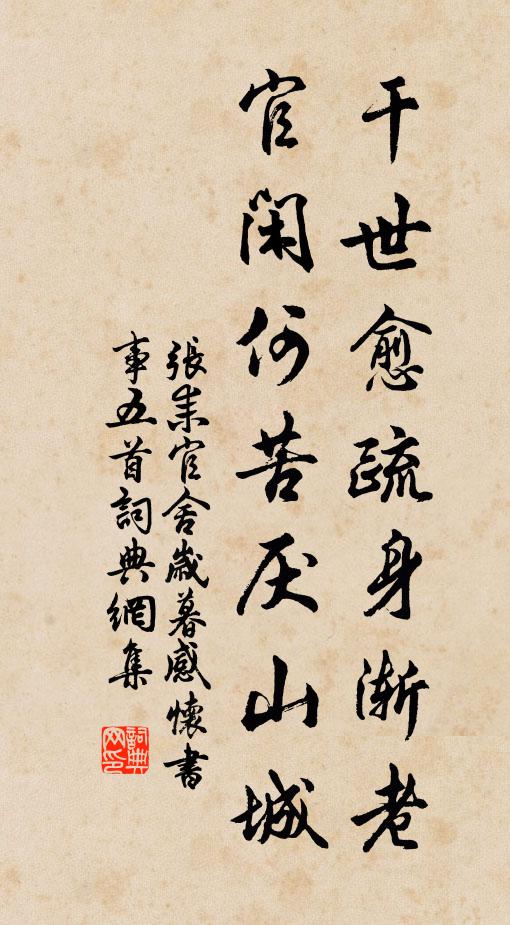 干世愈疏身渐老
官闲何苦厌山城
張耒官舍歲暮感懷書
事五首詞典網集
詞典
网印